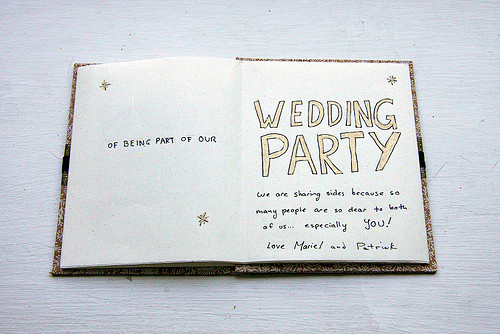 OF BEING PART OF OUR
WEDDING
PARTY
We are sharing sides because so
many people are so dear to both
of us... especially YOU!
Love Mariel and Patrick